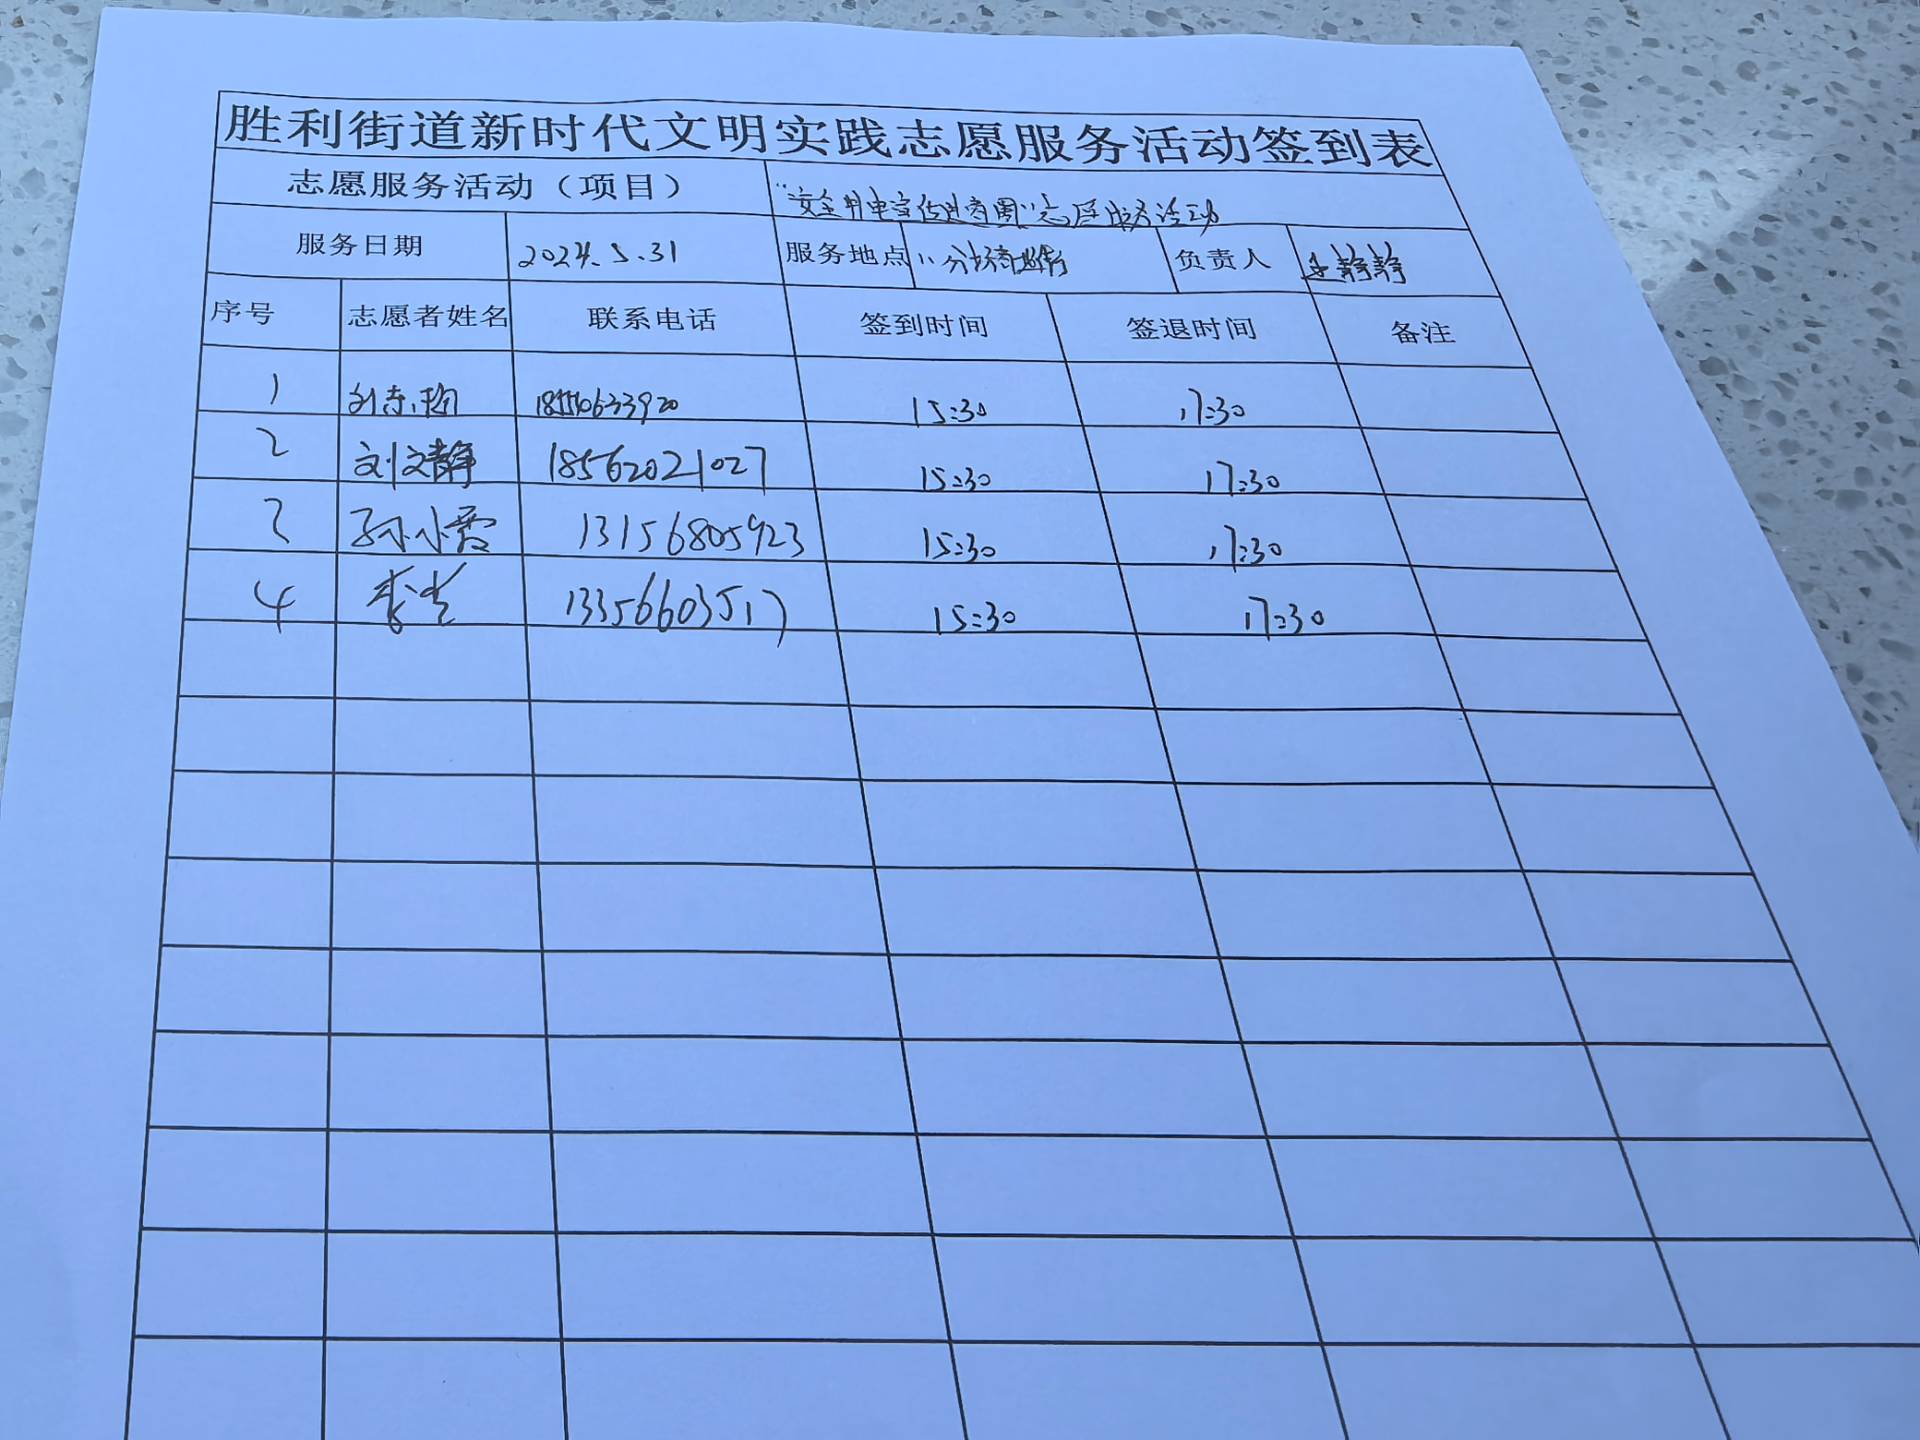 胜利街道新时代文明实践志愿服务活动签到表
志愿服务活动（项目） "安全用电宣传进商圈"志愿服务活动
服务日期 2024.5.31 服务地点 负责人 静静
序号 志愿者姓名 联系电话 签到时间 签退时间 备注
1 刘东 15:30 17:30
2 刘文静 18562021027 15:30 17:30
3 孙小霞 13156805923 15:30 17:30
4 李 13356603517 15:30 17:30